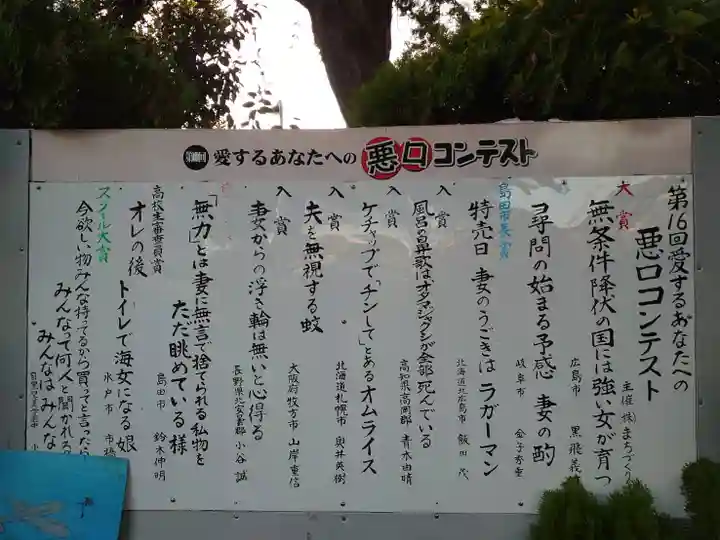 愛するあなたへの悪口コンテスト
第16回愛するあなたへの
悪口コンテスト
主催(株)まちづくり
大賞
無条件降伏の国には強い女が育つ
広島市 黒飛義
ヨ尋問の始まる予感 妻の酌
岐阜市 金子秀重
島田市長賞
特売日 妻のうごきは ラガーマン
北海道北広島市 飯田茂
入賞
風呂の鼻歌は、オタマジャクシが全部死んでいる
高知県高岡郡 青木由晴
入賞
ケチャップで「チンして」とあるオムライス
北海道札幌市 奥井英樹
入賞
夫を無視する蚊
大阪府枚方市 山岸重信
入賞
妻からの浮き輪は無いと心得る
長野県北安曇郡 小谷誠
「無力」とは妻に無言で捨てられる私物を
ただ眺めている様
島田市 鈴木仲明
高校生審査員賞
オレの後 トイレで海女になる娘
水戸市 市
スマイル大賞
今欲しい物みんな持ってるから買ってと言ったら
みんなって何人と聞かれ
みんなはみんな